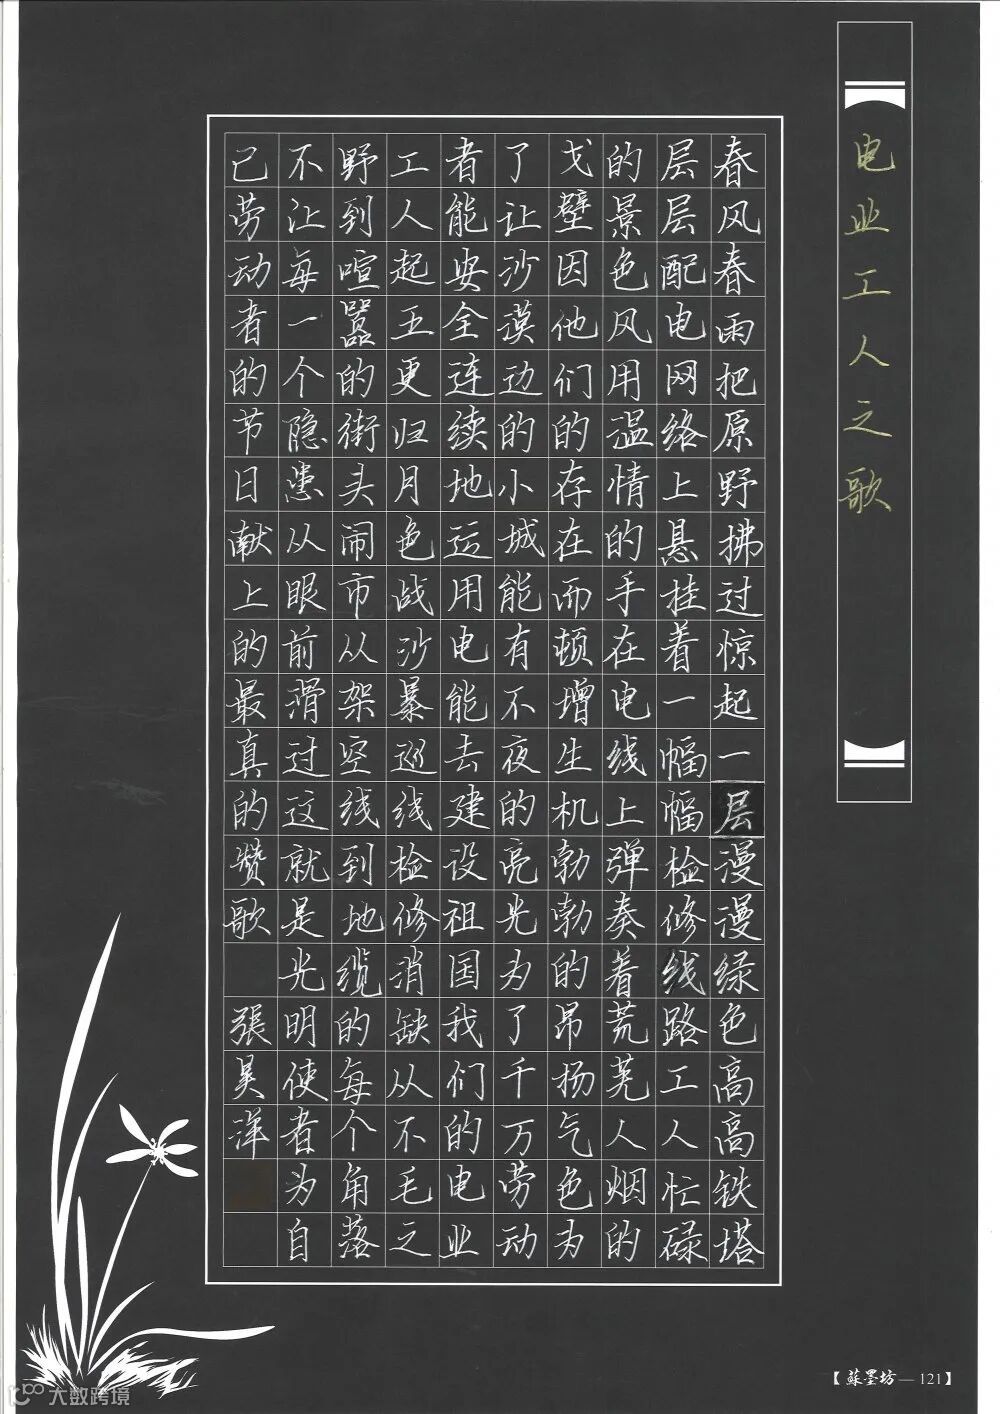 电业工人之歌
春风春雨把原野拂过惊起一层漫漫绿色高高铁塔
层层配电网络上悬挂着一幅幅检修线路工人忙碌
的景色风用温情的手在电线上弹奏着荒芜人烟的
戈壁因他们的存在而顿增生机勃勃的昂扬气色为
了让沙漠边的小城能有不夜的亮光为了千万劳动
者能安全连续地运用电能去建设祖国我们的电业
工人起五更归月色战沙暴巡线检修消缺从不毛之
野到喧嚣的街头闹市从架空线到地缆的每个角落
不让每一个隐患从眼前滑过这就是光明使者为自
己劳动者的节日献上的最真的赞歌 張昊洋
【蘇墨坊—121】
大数跨境